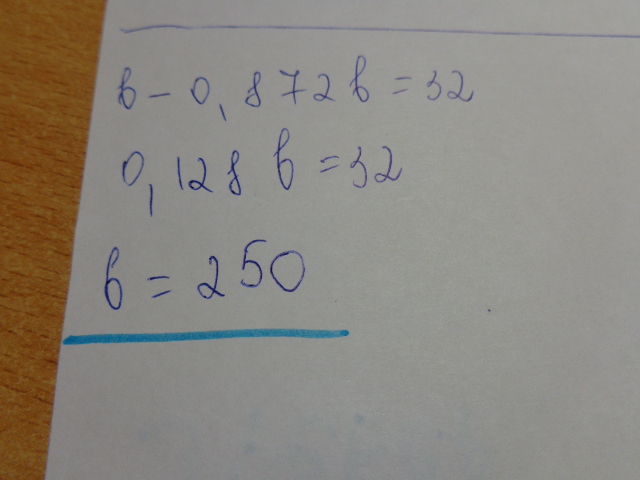 b - 0,872b = 32
0,128 b = 32
b = 250